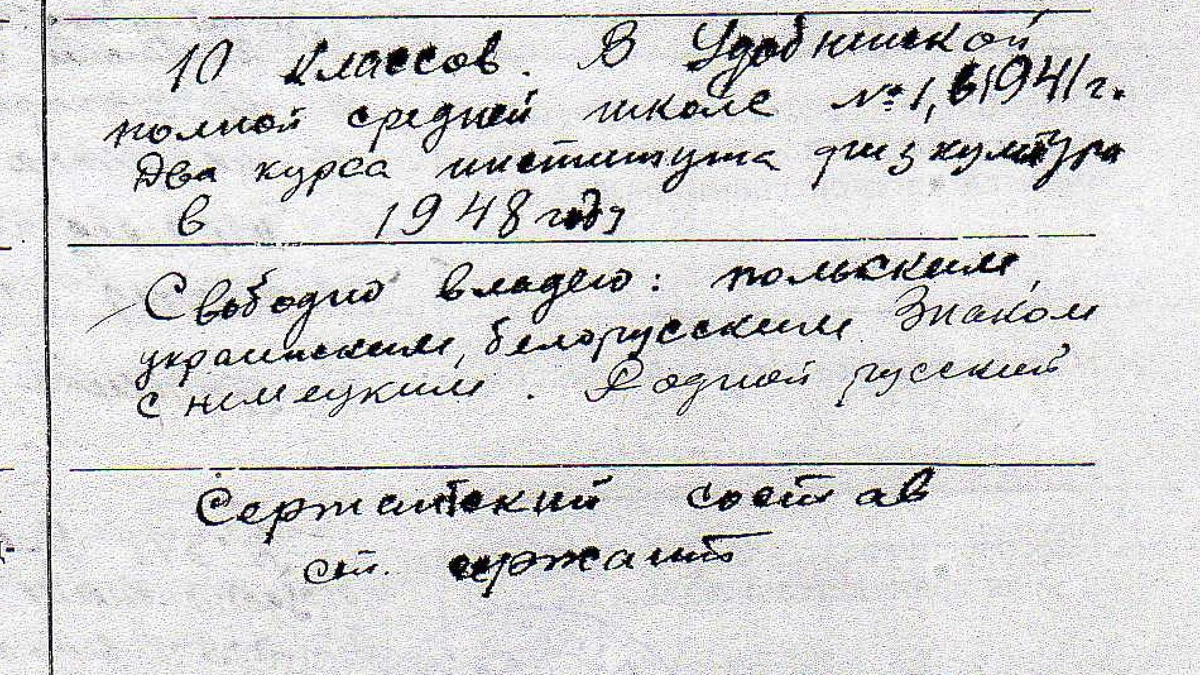 10 классов. В Удобненской
полной средней школе №1, в 1941 г.
Два курса института физкультуры
в 1948 году
Свободно владею: польским,
украинским, белорусским. Знаком
с немецким. Родной русский
Сержантский состав
ст. сержант